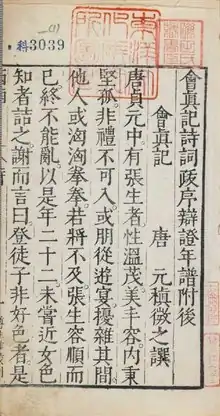 (1)
科3039
會眞記詩詞跋序辯證年譜附後
會眞記 唐 元稹微之譔
唐貞元中有張生者性溫茂美丰容內秉
堅孤非禮不可入或朋從遊宴擾雜其間
他人或洶洶拳拳若將不及張生容順而
已終不能亂以是年二十二未嘗近女色
知者詰之謝而言曰登徒子非好色者是